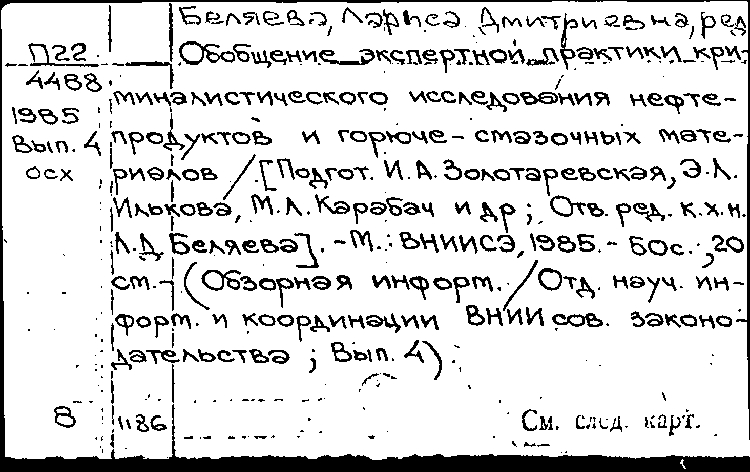 Беляева, Лариса Дмитриевна, ред
П22 Обобщение экспертной практики кри-
4488 миналистического исследования нефте-
1985 продуктов и горюче-смазочных мате-
Вып. 4 риалов / [Подгот. И.А. Золотаревская, Э.Л.
осх Илькова, М.Л. Карабач и др; Отв. ред. к.х.н.
Л.Д. Беляева]. - М.: ВНИИСЭ, 1985. - 50с.; 20
см. - (Обзорная информ. / Отд. науч. ин-
форм. и координации ВНИИ сов. законо-
дательства; Вып. 4).
8 1186 См. след. карт.